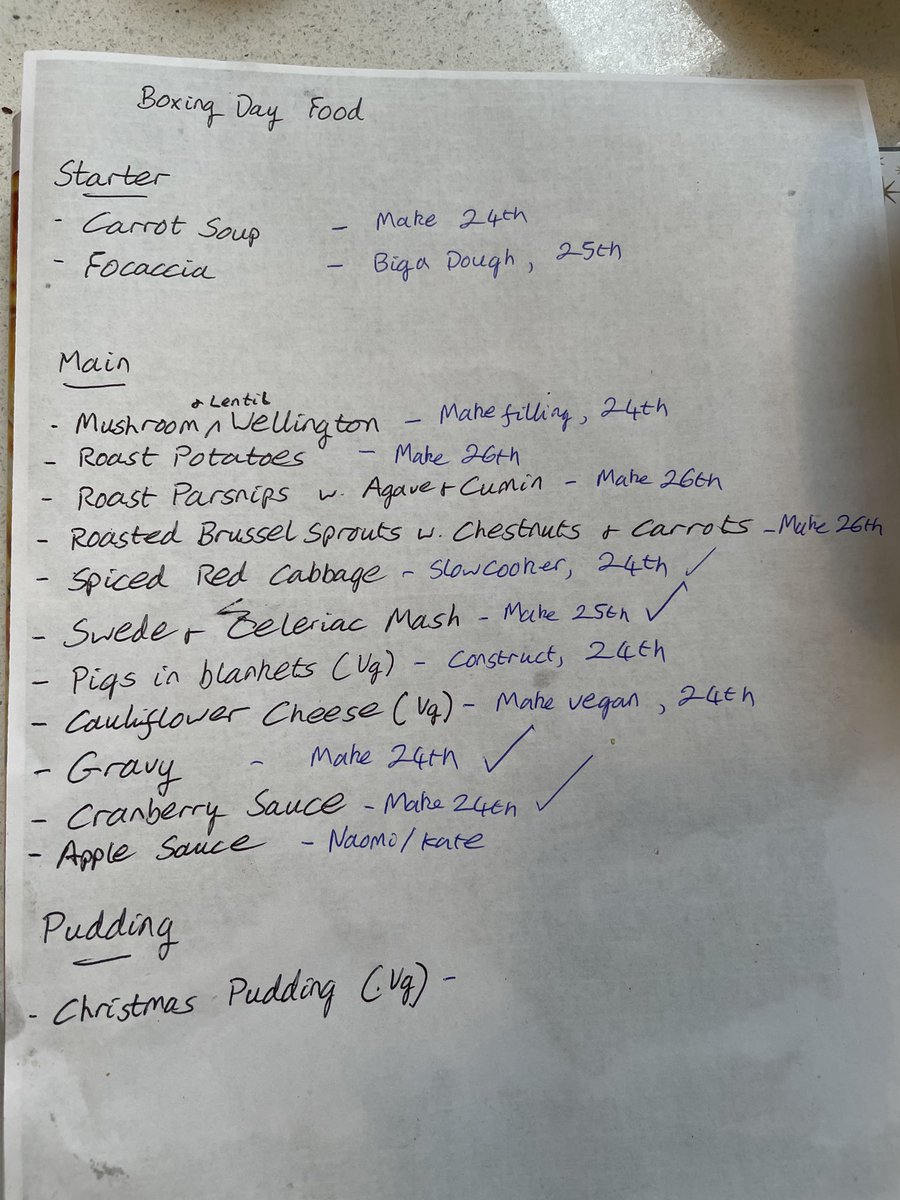 Boxing Day Food
Starter
- Carrot Soup - Make 24th
- Focaccia - Biga Dough, 25th
Main
- Mushroom & Lentil Wellington - Make filling, 24th
- Roast Potatoes - Make 26th
- Roast Parsnips w. Agave & Cumin - Make 26th
- Roasted Brussel Sprouts w. Chestnuts & Carrots - Make 26th
- Spiced Red Cabbage - Slowcooker, 24th ✓
- Swede & Celeriac Mash - Make 25th ✓
- Pigs in blankets (Vg) - Construct, 24th
- Cauliflower Cheese (Vg) - Make vegan, 24th
- Gravy - Make 24th ✓
- Cranberry Sauce - Make 24th ✓
- Apple Sauce - Naomi/Kate
Pudding
- Christmas Pudding (Vg) -